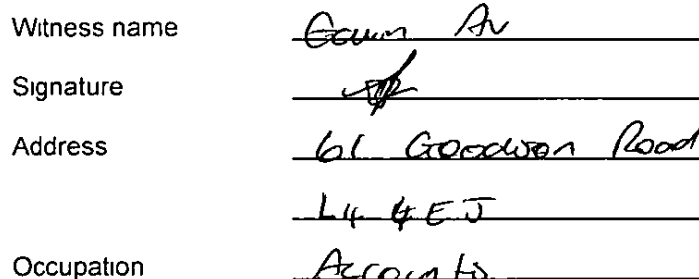 Witness name Gavin Au
Signature
Address 61 Goodison Road
L4 4EJ
Occupation Accounts